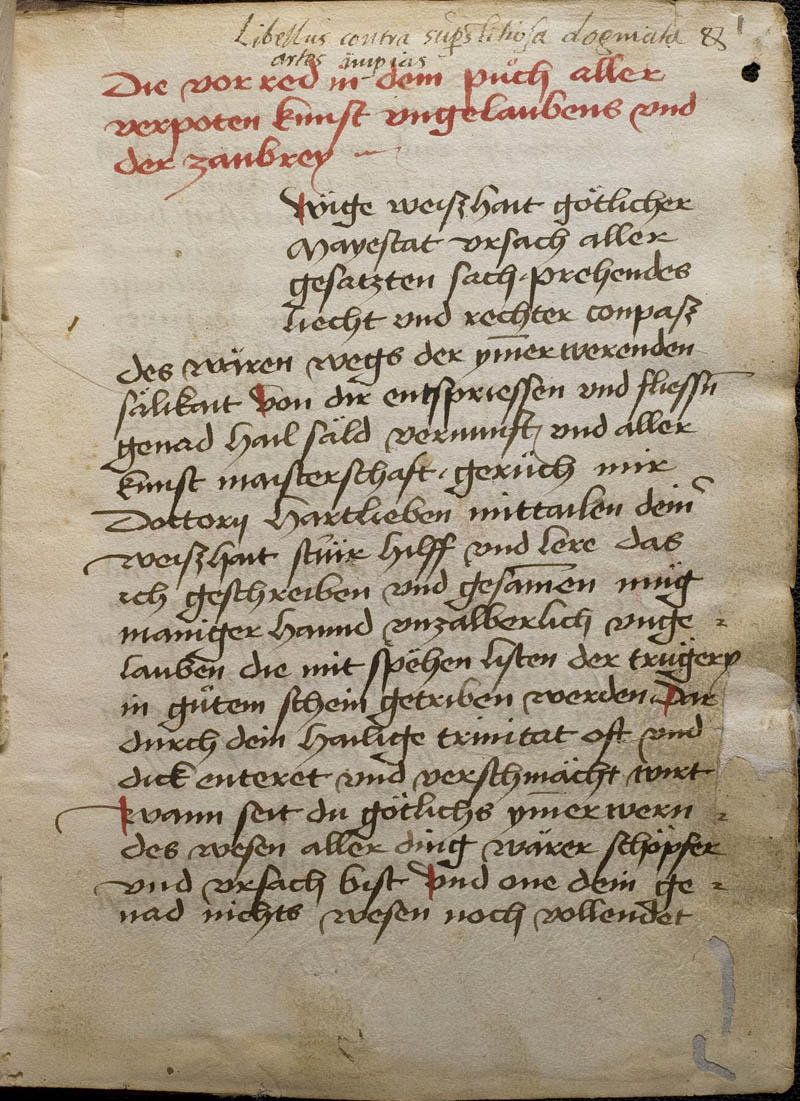 Libellus contra superstitiosa dogmata &
artes impias
Die vor red in dem půch aller
verpoten kunst vngelaubens vnd
der zaubrey
Wige weiszhait götlicher
Mayestat vrsach aller
gesatzten sach · prehendes
liecht vnd rechter conpasz
des wären wegs der ym̅er werenden
sälikait von dir entspriessen vnd fliessn̅
genad hail säld vernunft / vnd aller
kunst maisterschaft · gerüch mir
Dottorij Hartlieben mittailen dein̄
weiszhait stüir hilff vnd lere das
ich geschreiben vnd gesam̅en müg
maniger hannd vnzalberlich vnge =
lauben die mit spëhen listen der trugery
in gůtem schein getriben werden Dar
durch dein hailige trinitat oft vnd
dick enteret vnd verschmächt wirt
wann seit du götlichs ym̅er wern =
des wesen aller ding wärer schöpfer
vnd vrsach bist vnd one dein ge =
nad nichts wesen noch vollendet